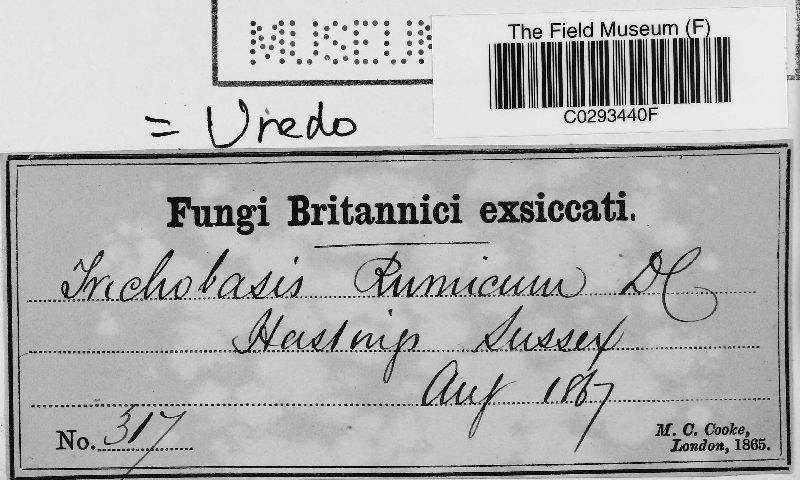 MUSEUM
The Field Museum (F)
C0293440F
= Uredo
Fungi Britannici exsiccati.
Trichobasis Rumicum DC
Hastings Sussex
Aug 1867
No. 317
M. C. Cooke,
London, 1865.